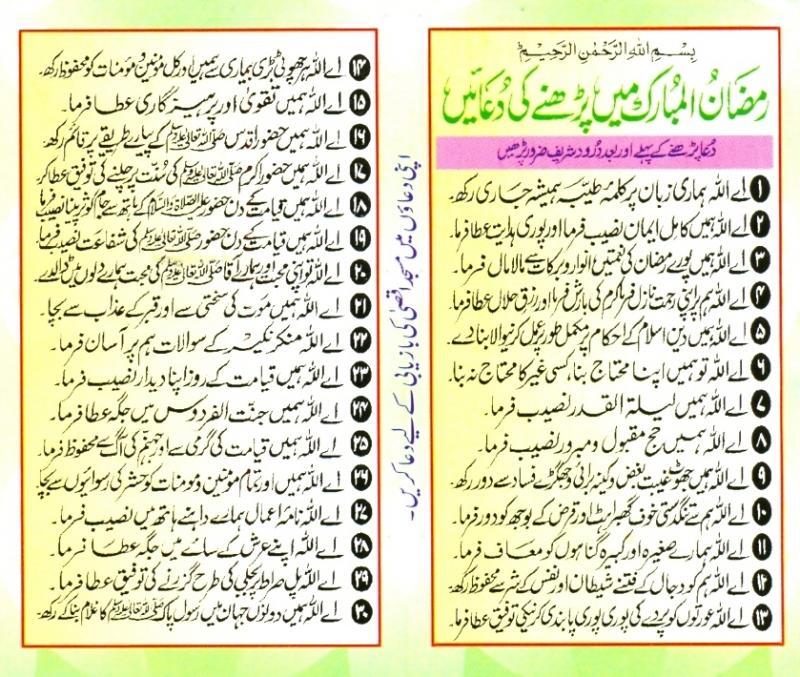 بِسْمِ اللهِ الرَّحْمٰنِ الرَّحِيْمِ
رمضانُ المُبارک میں پڑھنے کی دُعائیں
دُعا پڑھنے کے پہلے اور بعد دُرود شریف ضرور پڑھیں
۱ اے اللہ ہماری زبان پر کلمۂ طیبہ ہمیشہ جاری رکھ۔
۲ اے اللہ ہمیں کامل ایمان نصیب فرما اور پوری ہدایت عطا فرما۔
۳ اے اللہ ہمیں پورے رمضان کی نعمتیں انوار و برکات سے مالا مال فرما۔
۴ اے اللہ ہم پر اپنی رحمت نازل فرما کرم کی بارش فرما اور رزقِ حلال عطا فرما۔
۵ اے اللہ ہمیں دین اسلام کے احکام پر مکمل طور پر عمل کرنیوالا بنا دے۔
۶ اے اللہ تو ہمیں اپنا محتاج بنا، کسی غیر کا محتاج نہ بنا۔
۷ اے اللہ ہمیں لیلۃ القدر نصیب فرما۔
۸ اے اللہ ہمیں حج مقبول و مبرور نصیب فرما۔
۹ اے اللہ ہمیں جھوٹ غیبت بغض و کینہ برائی و جھگڑے فساد سے دور رکھ۔
۱۰ اے اللہ ہم سے تنگدستی خوف گھبراہٹ اور قرض کے بوجھ کو دور فرما۔
۱۱ اے اللہ ہمارے صغیرہ اور کبیرہ گناہوں کو معاف فرما۔
۱۲ اے اللہ ہم کو دجال کے فتنے شیطان اور نفس کے شر سے محفوظ رکھ۔
۱۳ اے اللہ عورتوں کو پردے کی پوری پوری پابندی کرنیکی توفیق عطا فرما۔
اپنی دعاؤں میں مسجد اقصیٰ کی بازیابی کے لیے دعا کریں۔
۱۴ اے اللہ ہر چھوٹی بڑی بیماری سے ہمیں اور کل مؤمنین و مؤمنات کو محفوظ رکھ۔
۱۵ اے اللہ ہمیں تقویٰ اور پرہیزگاری عطا فرما۔
۱۶ اے اللہ ہمیں حضور اقدس صلی اللہ تعالیٰ علیہ وسلم کے پیارے طریقے پر قائم رکھ۔
۱۷ اے اللہ ہمیں حضور اکرم صلی اللہ تعالیٰ علیہ وسلم کی سُنّت پر چلنے کی توفیق عطا کر
۱۸ اے اللہ ہمیں قیامت کے دن حضور علیہ الصلاۃ والسلام کے ہاتھ سے جام کوثر پینا نصیب فرما
۱۹ اے اللہ ہمیں قیامت کے دن حضور صلی اللہ تعالیٰ علیہ وسلم کی شفاعت نصیب فرما۔
۲۰ اے اللہ تو اپنی محبت اور ہمارے آقا صلی اللہ تعالیٰ علیہ وسلم کی محبت ہمارے دلوں میں ڈالدے۔
۲۱ اے اللہ ہمیں موت کی سختی سے اور قبر کے عذاب سے بچا۔
۲۲ اے اللہ منکر نکیر کے سوالات ہم پر آسان فرما۔
۲۳ اے اللہ ہمیں قیامت کے روز اپنا دیدار نصیب فرما۔
۲۴ اے اللہ ہمیں جنت الفردوس میں جگہ عطا فرما۔
۲۵ اے اللہ ہمیں قیامت کی گرمی سے اور جہنم کی آگ سے محفوظ فرما۔
۲۶ اے اللہ ہمیں اور تمام مؤمنین و مومنات کو حشر کی رسوائیوں سے بچا
۲۷ اے اللہ نامۂ اعمال ہمارے داہنے ہاتھ میں نصیب فرما۔
۲۸ اے اللہ اپنے عرش کے سائے میں جگہ عطا فرما۔
۲۹ اے اللہ پل صراط پر بجلی کی طرح گزرنے کی توفیق عطا فرما۔
۳۰ اے اللہ ہمیں دونوں جہان میں رسول پاک صلی اللہ تعالیٰ علیہ وسلم کا غلام بنا کے رکھ۔